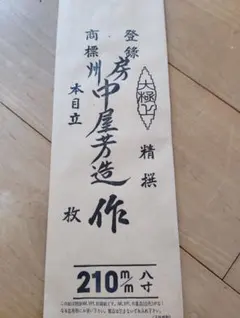 登録
商標
大極上
房州
中屋芳造作
本目立
精撰
枚
210 m/m 八寸